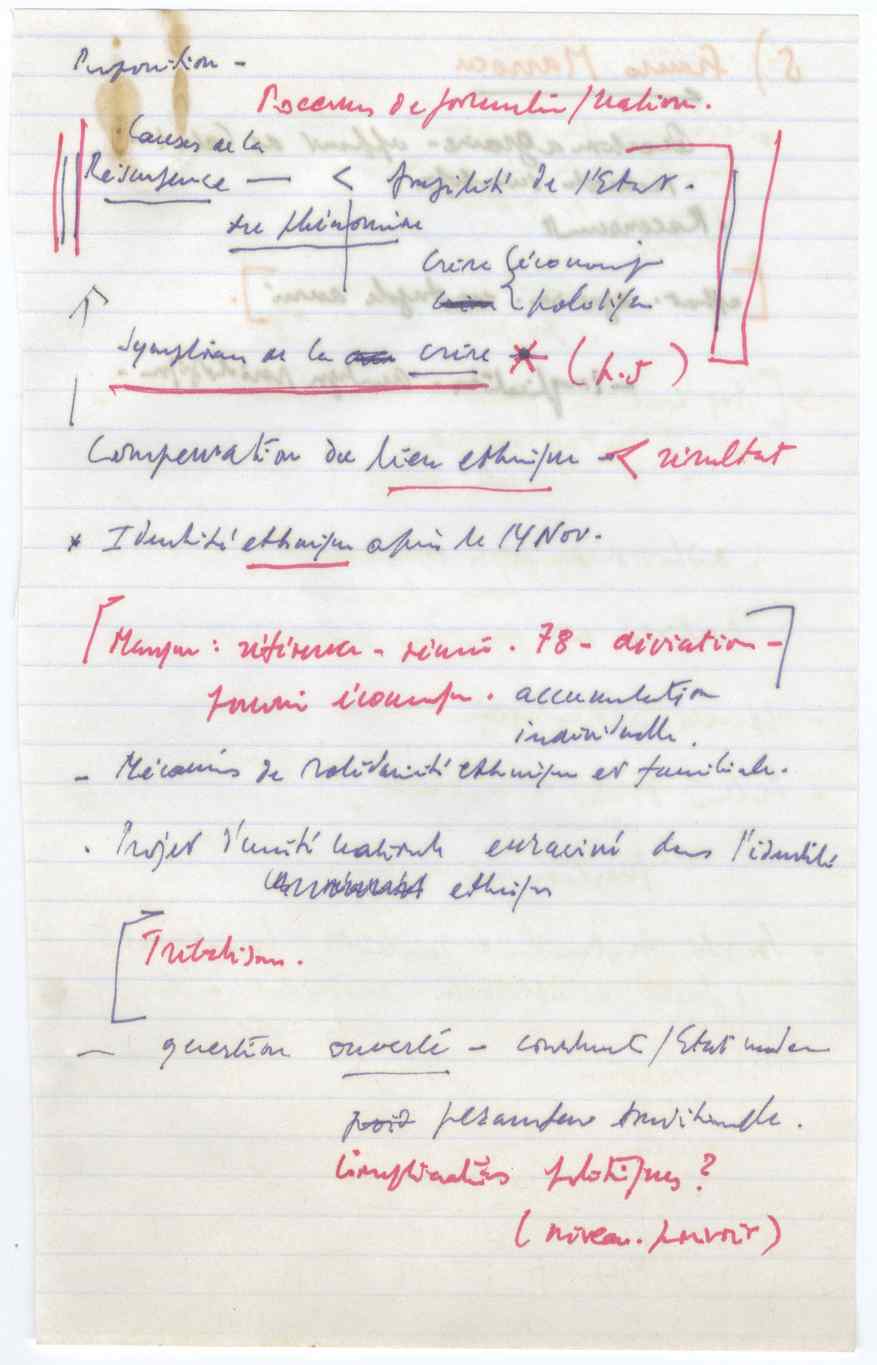 Proposition -
Processus de formation/nation.
Causes de la
Résurgence — < fragilité de l'Etat.
du phénomène
Crise { économiq
{ politiqu
Symptôme de la crise * (p.5)
Compensation du lien ethniqu < résultat
* Identité ethniqu après le 14 Nov.
Manqu: référence - réuni. 78 - déviation -
pouvoir économiqu. accumulation
individuelle.
- Mécanis de solidarité ethniqu et familiale.
. Projet d'unité nationale enraciné dans l'identité
ethniqu
Tribalism.
- question ouverte - construct/Etat moderne
poid pesanteur traditionnelle.
Implications politiques ?
(niveau. pouvoir)